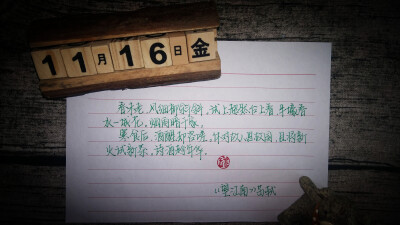 11月16日金
春未老,风细柳斜斜。试上超然台上看,半壕春
水一城花,烟雨暗千家。
寒食后,酒醒却咨嗟。休对故人思故国,且将新
火试新茶,诗酒趁年华。
《望江南》苏轼